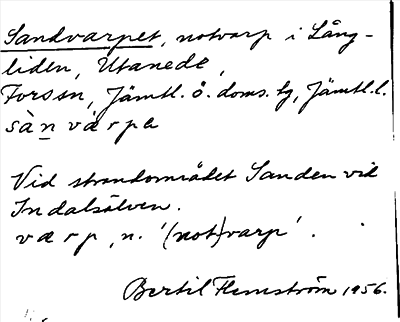 Sandvarpet, notvarp i Lång-
liden, Utanede,
Forssn, Jämtl. ö. doms. tg, Jämtl. l.
sànvárpe
Vid strandområdet Sanden vid
Indalsälven.
varp, n. '(not)varp'.
Bertil Flemström 1956.